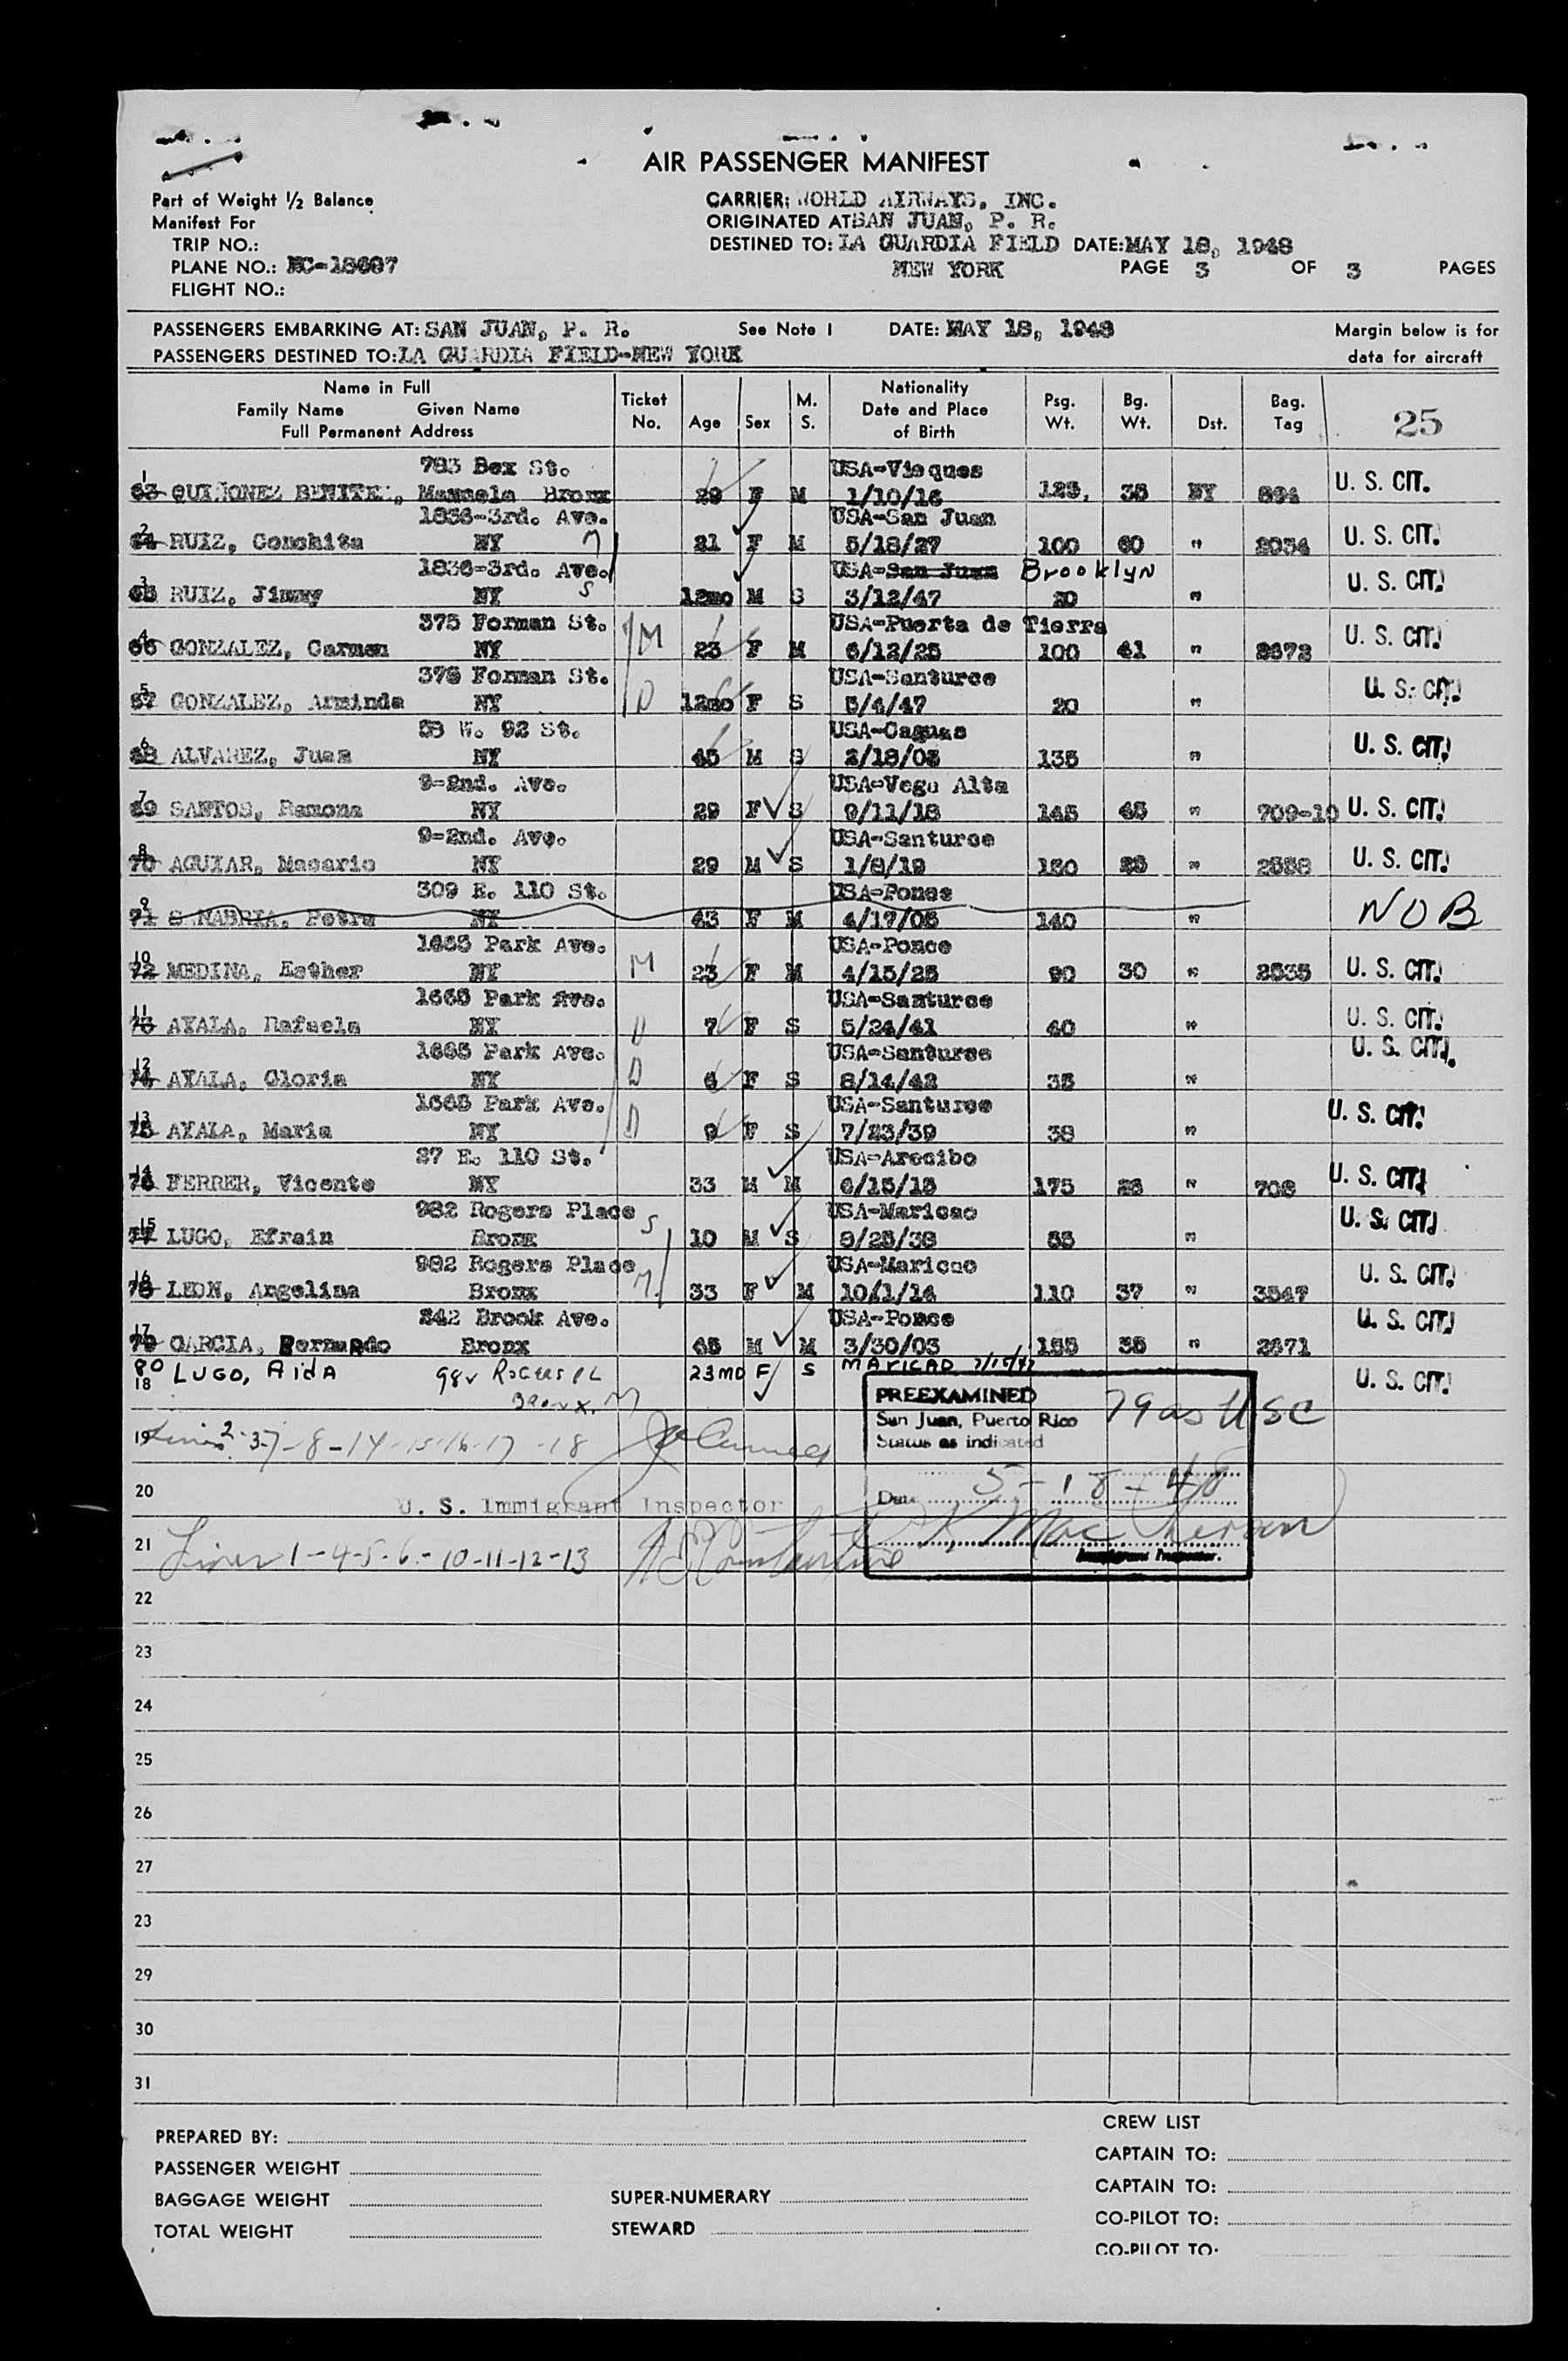 AIR PASSENGER MANIFEST
Part of Weight 1/2 Balance
Manifest For
TRIP NO.:
PLANE NO.: NC-18607
FLIGHT NO.:
CARRIER: WORLD AIRWAYS, INC.
ORIGINATED AT SAN JUAN, P. R.
DESTINED TO: LA GUARDIA FIELD DATE: MAY 18, 1948
NEW YORK PAGE 3 OF 3 PAGES
PASSENGERS EMBARKING AT: SAN JUAN, P. R. See Note 1 DATE: MAY 18, 1948 Margin below is for
PASSENGERS DESTINED TO: LA GUARDIA FIELD-NEW YORK data for aircraft
Name in Full Ticket No. Age Sex M. S. Nationality Psg. Wt. Bg. Wt. Dst. Bag. Tag 25
Family Name Given Name Date and Place
Full Permanent Address of Birth
783 Bex St. USA-Vieques
1 63 QUINONEZ BENITEZ, Manuela Bronx 29 F M 1/10/16 125, 35 NY 894 U. S. CIT.
1836-3rd. Ave. USA-San Juan
2 64 RUIZ, Conchita NY M 21 F M 5/18/27 100 60 " 2034 U. S. CIT.
1836-3rd. Ave. USA-San Juan Brooklyn
3 65 RUIZ, Jimmy NY S 12mo M S 3/12/47 20 " U. S. CIT.
375 Forman St. USA-Puerta de Tierra
4 66 GONZALEZ, Carmen NY M 23 F M 6/12/25 100 41 " U. S. CIT.
375 Forman St. USA-Santurce
5 67 GONZALEZ, Arminda NY D 12mo F S 5/4/47 20 " U. S. CIT.
W. 92 St. USA-Caguas
6 68 ALVAREZ, Juan NY 45 M S 2/18/03 135 " U. S. CIT.
9-2nd. Ave. USA-Vega Alta
7 69 SANTOS, Ramona NY 29 F S 9/11/18 145 45 " 709-10 U. S. CIT.
9-2nd. Ave. USA-Santurce
8 70 AGUIAR, Macario NY 29 M S 1/8/19 150 " 2538 U. S. CIT.
309 E. 110 St. USA-Ponce
9 71 SANABRIA, Petra NY 43 F M 4/17/05 140 " NOB
1665 Park Ave. USA-Ponce
10 72 MEDINA, Esther NY M 23 F M 4/15/25 90 30 " 2535 U. S. CIT.
1665 Park Ave. USA-Santurce
11 73 AYALA, Rafaela NY D 7 F S 5/24/41 40 " U. S. CIT.
1665 Park Ave. USA-Santurce U. S. CIT.
12 74 AYALA, Gloria NY D 6 F S 8/14/42 35 "
1665 Park Ave. USA-Santurce
13 75 AYALA, Maria NY D 9 F S 7/23/39 38 " U. S. CIT.
27 E. 110 St. USA-Arecibo
14 76 FERRER, Vicente NY 33 M M 6/15/15 175 " 708 U. S. CIT.
982 Rogers Place USA-Maricao
15 77 LUGO, Efrain Bronx S 10 M S 9/25/38 55 " U. S. CIT.
982 Rogers Place USA-Maricao
16 78 LEON, Angelina Bronx M 33 F M 10/1/14 110 37 " 3547 U. S. CIT.
342 Brook Ave. USA-Ponce
17 79 GARCIA, Bernardo Bronx 65 M M 3/30/03 155 35 " 2671 U. S. CIT.
80 18 LUGO, Aida 982 Rogers PL Bronx. M 23 MO F S MARICAO U. S. CIT.
PREEXAMINED 79 as USC
San Juan, Puerto Rico
Status as indicated
Date 5-18-48
Immigrant Inspector.
19 Lines 2-3-7-8-14-15-16-17-18
20
U. S. Immigrant Inspector
21 Lines 1-4-5-6-10-11-12-13
22
23
24
25
26
27
23
29
30
31
PREPARED BY:
PASSENGER WEIGHT
BAGGAGE WEIGHT
TOTAL WEIGHT
SUPER-NUMERARY
STEWARD
CREW LIST
CAPTAIN TO:
CAPTAIN TO:
CO-PILOT TO:
CO-PILOT TO: